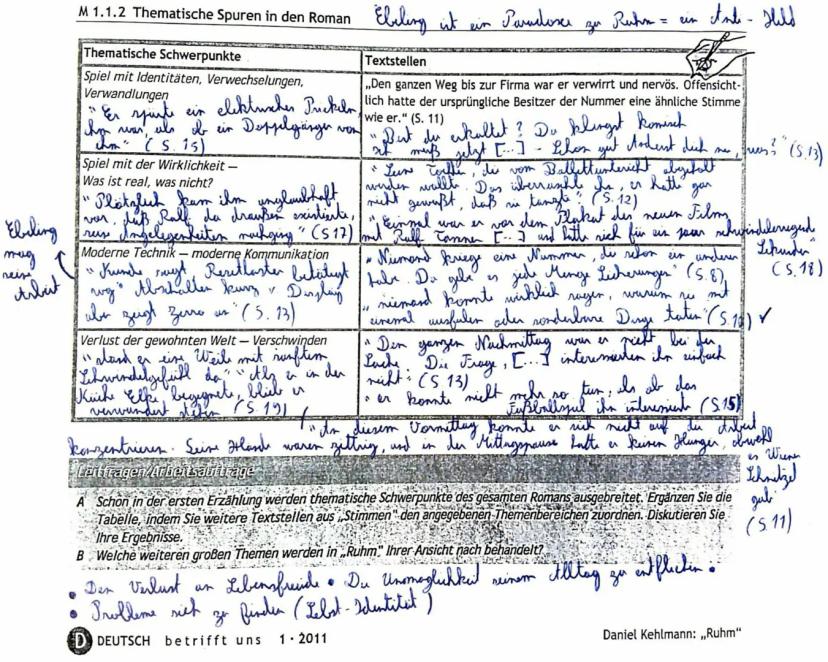 M 1.1.2 Thematische Spuren in den Roman
Ebeling ist ein Paradoxe zu Ruhm = ein Anti-Held
Thematische Schwerpunkte
Textstellen
Spiel mit Identitäten, Verwechselungen,
Verwandlungen
"Er spürte ein elektrisches Prickeln,
ihm war, als ob ein Doppelgänger von
ihm" (S. 15)
„Den ganzen Weg bis zur Firma war er verwirrt und nervös. Offensicht-
lich hatte der ursprüngliche Besitzer der Nummer eine ähnliche Stimme
wie er." (S. 11)
"Bist du erkältet? Du klingst komisch
[...] - Schon gut Änderst dich nie, was?" (S. 13)
Spiel mit der Wirklichkeit —
Was ist real, was nicht?
"Plötzlich kam ihm unglaubhaft
vor, daß Ralf da draußen existierte,
seine Angelegenheiten nachging" (S 17)
"Seine Tochter, die vom Ballettunterricht abgeholt
werden wollte. Das überraschte ihn, er hatte gar
nicht gewußt, daß sie tanzte" (S. 12)
"Einmal war er vor dem Plakat des neuen Films
mit Ralf Tanner [...] und hatte sich für ein paar schwindelerregend
Sekunden"
(S. 18)
Ebeling
mag
seine
Arbeit
Moderne Technik — moderne Kommunikation
"Kunde sagt, Resetkasten betätigt
wg Abschalten kurz. Display
aber zeigt Zerro an" (S. 13)
"Niemand kriege eine Nummer, die schon ein anderer
habe. Da gebe es jede Menge Sicherungen" (S. 8)
"niemand konnte wirklich sagen, warum sie mit
einemal ausfielen oder sonderbare Dinge taten" (S. 10) ✓
Verlust der gewohnten Welt — Verschwinden
"stand er eine Weile mit sanftem
Schwindelgefühl da" "Als er in der
Küche Elke begegnete, blieb er
verwundert stehen (S 19)
"Den ganzen Nachmittag war er nicht bei der
Sache. Die Frage, [...] interessierten ihn einfach
nicht" (S 13)
"er konnte nicht mehr so tun, als ob das
Fußballspiel ihn interessierte (S. 15)
"An diesem Vormittag konnte er sich nicht auf die Arbeit
konzentrieren. Seine Hände waren zittrig, und in der Mittagspause hatte er keinen Hunger, obwohl
es Wiener
Schnitzel
gab"
(S. 11)
Leitfragen/Arbeitsaufträge
A Schon in der ersten Erzählung werden thematische Schwerpunkte des gesamten Romans ausgebreitet. Ergänzen Sie die
Tabelle, indem Sie weitere Textstellen aus „Stimmen" den angegebenen Themenbereichen zuordnen. Diskutieren Sie
Ihre Ergebnisse.
B Welche weiteren großen Themen werden in „Ruhm" Ihrer Ansicht nach behandelt?
• Den Verlust an Lebensfreude • Die Unmöglichkeit seinem Alltag zu entfliehen •
• Probleme sich zu finden (Selbst-Identität)
D DEUTSCH betrifft uns 1 · 2011
Daniel Kehlmann: „Ruhm"